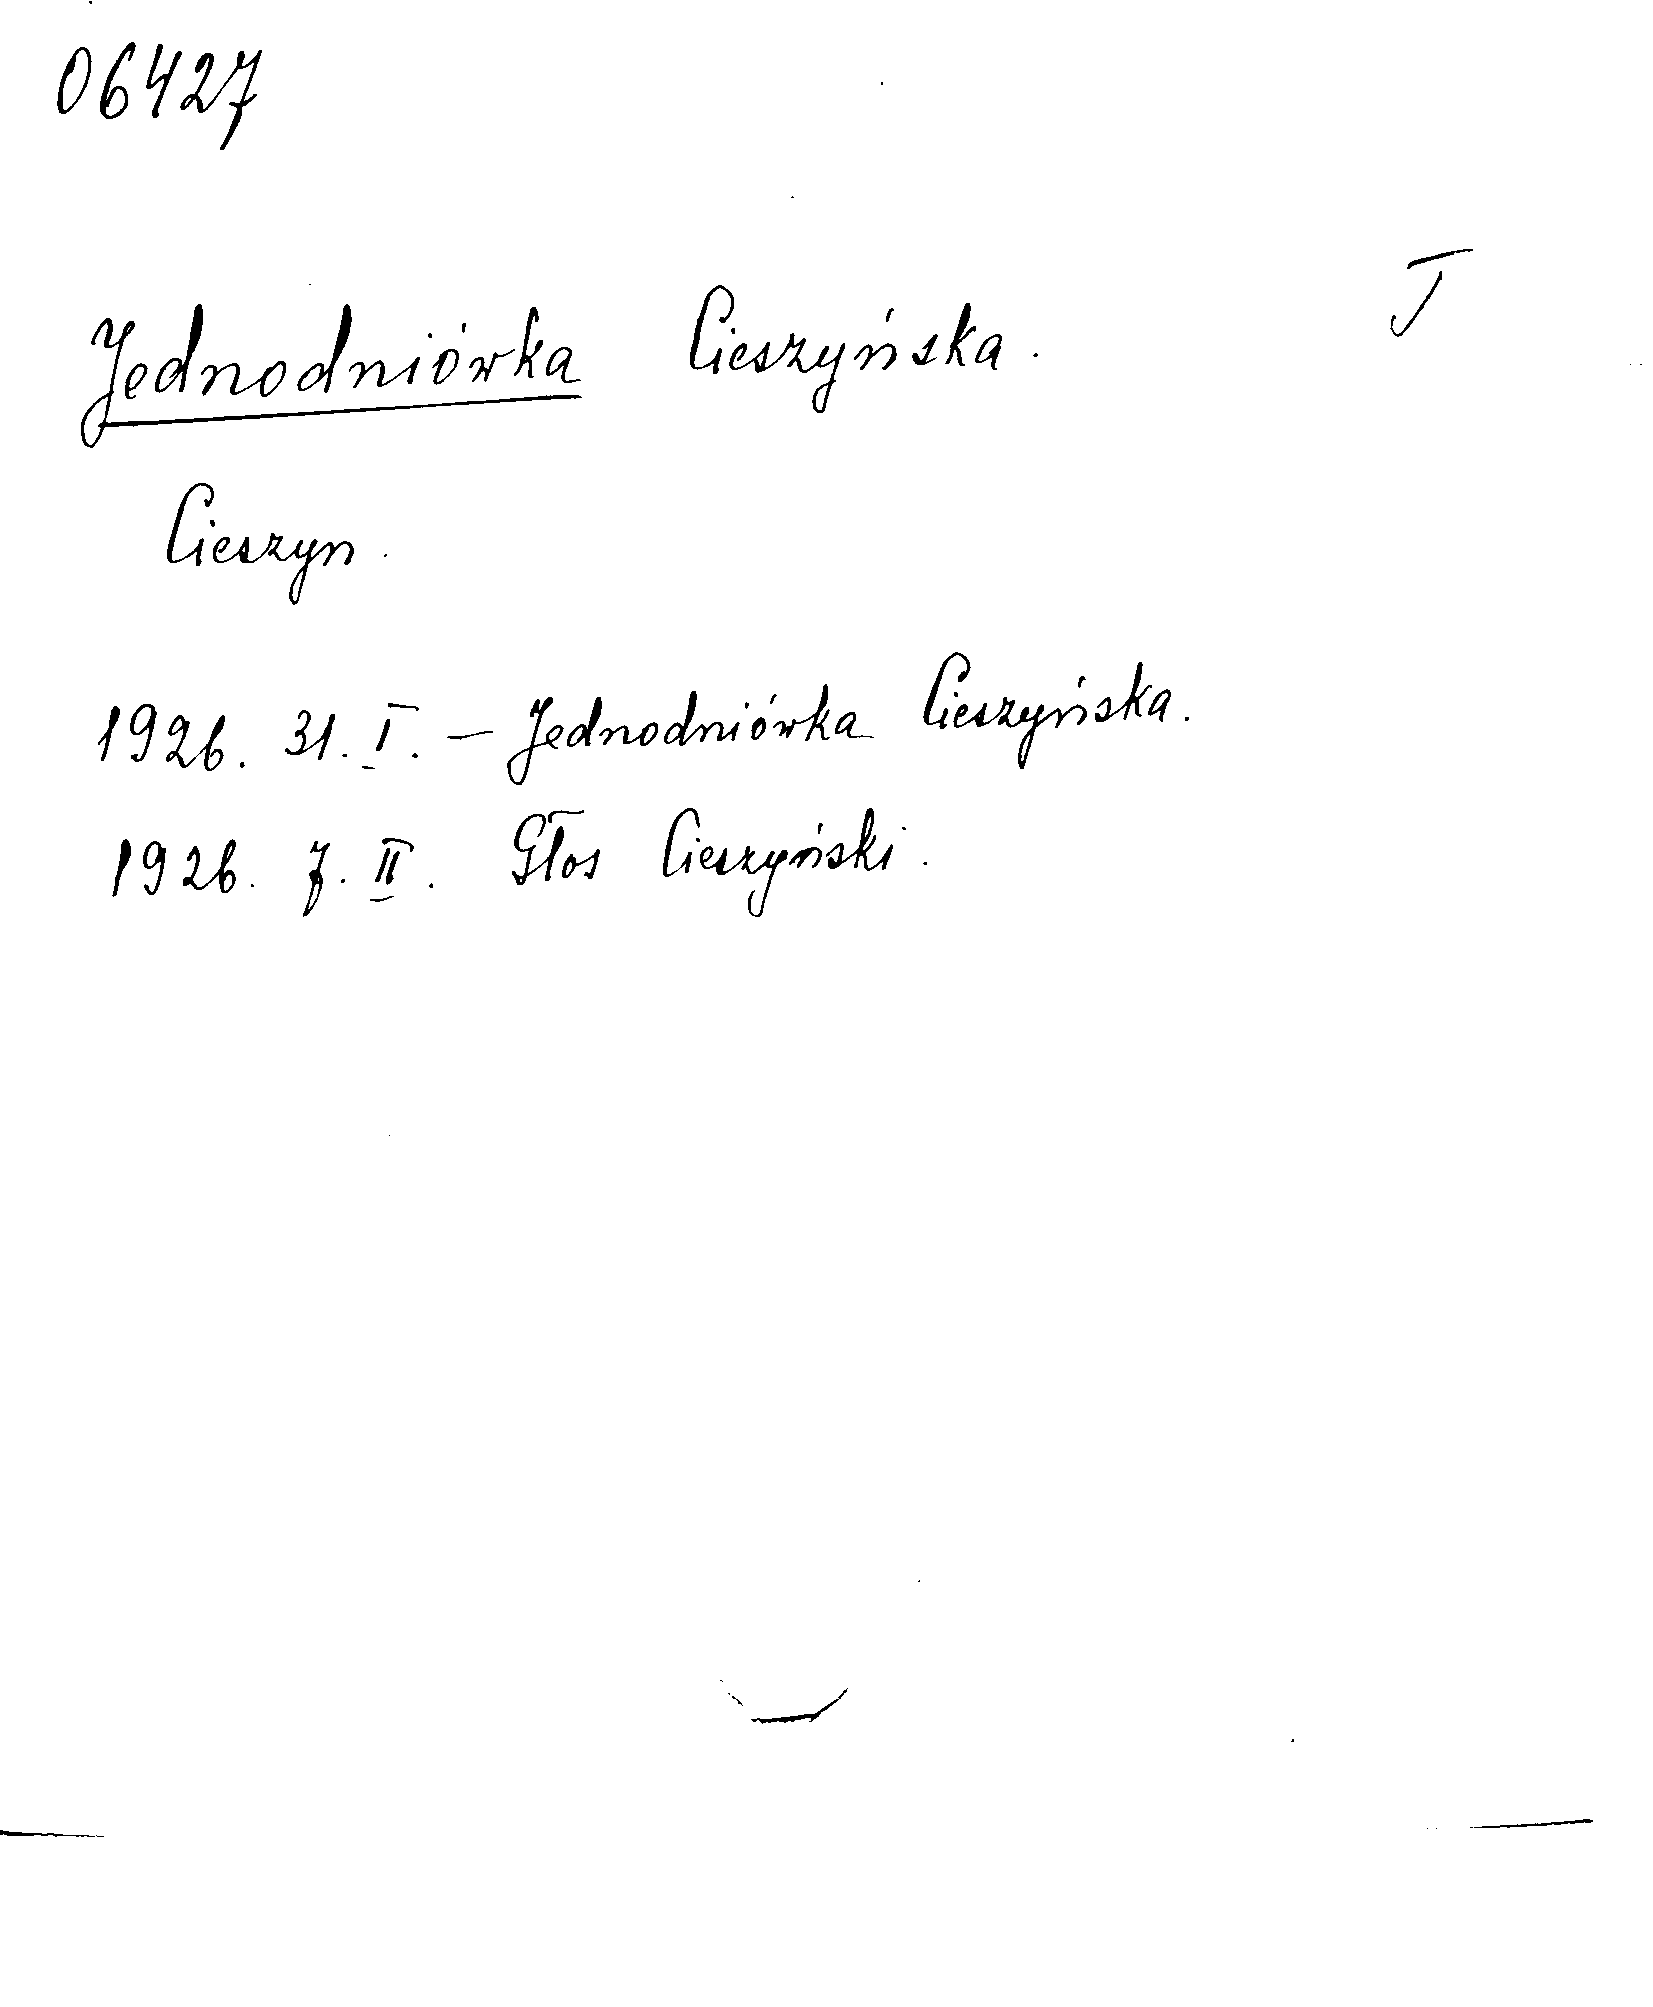 06427
J
Jednodniówka Cieszyńska.
Cieszyn.
1926. 31. I. – Jednodniówka Cieszyńska.
1926. 7. II. Głos Cieszyński.